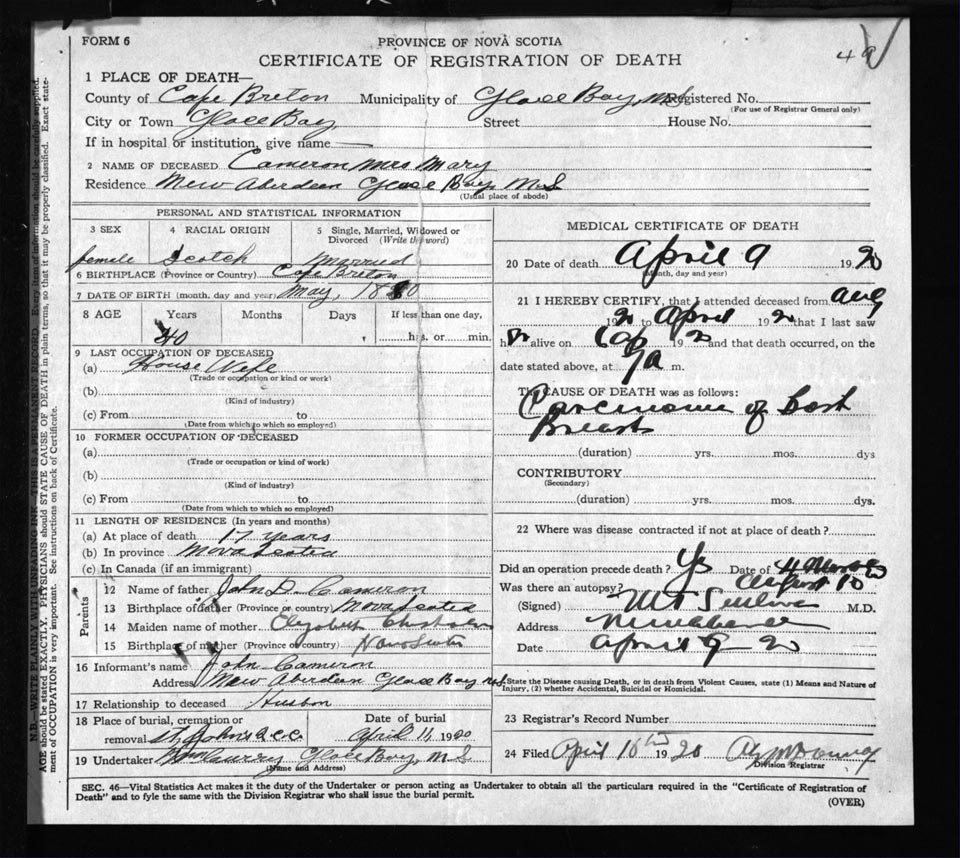 FORM 6
PROVINCE OF NOVA SCOTIA
CERTIFICATE OF REGISTRATION OF DEATH
49
1 PLACE OF DEATH—
County of Cape Breton Municipality of Glace Bay, N.S. Registered No.
(For use of Registrar General only)
City or Town Glace Bay, Street House No.
If in hospital or institution, give name
2 NAME OF DECEASED Cameron Mrs Mary
Residence New Aberdeen Glace Bay N.S.
(Usual place of abode)
PERSONAL AND STATISTICAL INFORMATION
3 SEX 4 RACIAL ORIGIN 5 Single, Married, Widowed or Divorced (Write the word)
female Scotch Married
6 BIRTHPLACE (Province or Country) Cape Breton
7 DATE OF BIRTH (month, day and year) May, 1880
8 AGE Years Months Days If less than one day,
40 hrs. or min.
9 LAST OCCUPATION OF DECEASED
(a) House Wife
(Trade or occupation or kind or work)
(b)
(Kind of industry)
(c) From to
(Date from which to which so employed)
10 FORMER OCCUPATION OF DECEASED
(a)
(Trade or occupation or kind of work)
(b)
(Kind of industry)
(c) From to
(Date from which to which so employed)
11 LENGTH OF RESIDENCE (In years and months)
(a) At place of death 17 years
(b) In province Nova Scotia
(c) In Canada (if an immigrant)
Parents
12 Name of father John D. Cameron
13 Birthplace of father (Province or country) Nova Scotia
14 Maiden name of mother Elizabeth Chisholm
15 Birthplace of mother (Province or country) Nova Scotia
16 Informant's name John Cameron
Address New Aberdeen Glace Bay N.S.
17 Relationship to deceased Husbon
18 Place of burial, cremation or removal St John's Date of burial April 11, 1920
19 Undertaker Glace Bay, N.S.
(Name and Address)
MEDICAL CERTIFICATE OF DEATH
20 Date of death April 9 1920
(Month, day and year)
21 I HEREBY CERTIFY, that I attended deceased from Aug
192 to April 192 that I last saw
h alive on 192 and that death occurred, on
date stated above, at 7 a m.
The CAUSE OF DEATH was as follows:
Carcinoma of both
Breasts
(duration) yrs. mos. dys
CONTRIBUTORY
(Secondary)
(duration) yrs. mos. dys.
22 Where was disease contracted if not at place of death?
Did an operation precede death? Yes Date of
August 10
Was there an autopsy?
(Signed) M.D.
Address New Aberdeen
Date April 9 20
State the Disease causing Death, or in death from Violent Causes, state (1) Means and Nature of Injury, (2) whether Accidental, Suicidal or Homicidal.
23 Registrar's Record Number
24 Filed April 10th 1920
Division Registrar
SEC. 46—Vital Statistics Act makes it the duty of the Undertaker or person acting as Undertaker to obtain all the particulars required in the "Certificate of Registration of
Death" and to fyle the same with the Division Registrar who shall issue the burial permit.
(OVER)
N.B.—WRITE PLAINLY WITH UNFADING INK—THIS IS A PERMANENT RECORD. Every item of information should be carefully supplied.
AGE should be stated EXACTLY. PHYSICIANS should STATE CAUSE OF DEATH in plain terms, so that it may be properly classified. Exact state-
ment of OCCUPATION is very important. See instructions on back of Certificate.